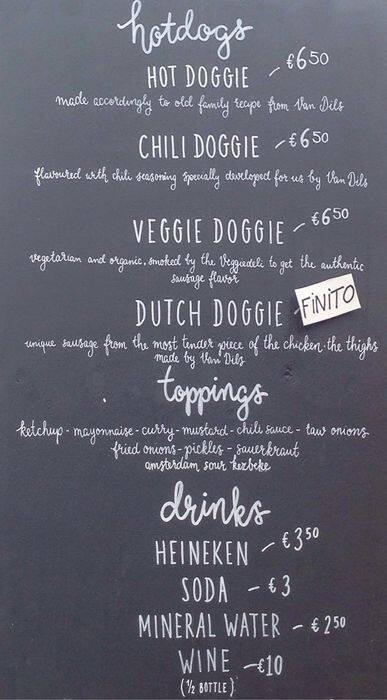 hotdogs
HOT DOGGIE - €6⁵⁰
made accordingly to old family recipe from Van Dils
CHILI DOGGIE - €6⁵⁰
flavoured with chili seasoning specially developed for us by Van Dils
VEGGIE DOGGIE - €6⁵⁰
vegetarian and organic, smoked by the Veggiedeli to get the authentic
sausage flavor
DUTCH DOGGIE - FiNiTO
unique sausage from the most tender piece of the chicken, the thighs
made by Van Dils
toppings
ketchup - mayonnaise - curry - mustard - chili sauce - raw onions
fried onions - pickles - sauerkraut
amsterdam sour
drinks
HEINEKEN - €3⁵⁰
SODA - €3
MINERAL WATER - €2⁵⁰
WINE - €10
(½ BOTTLE)